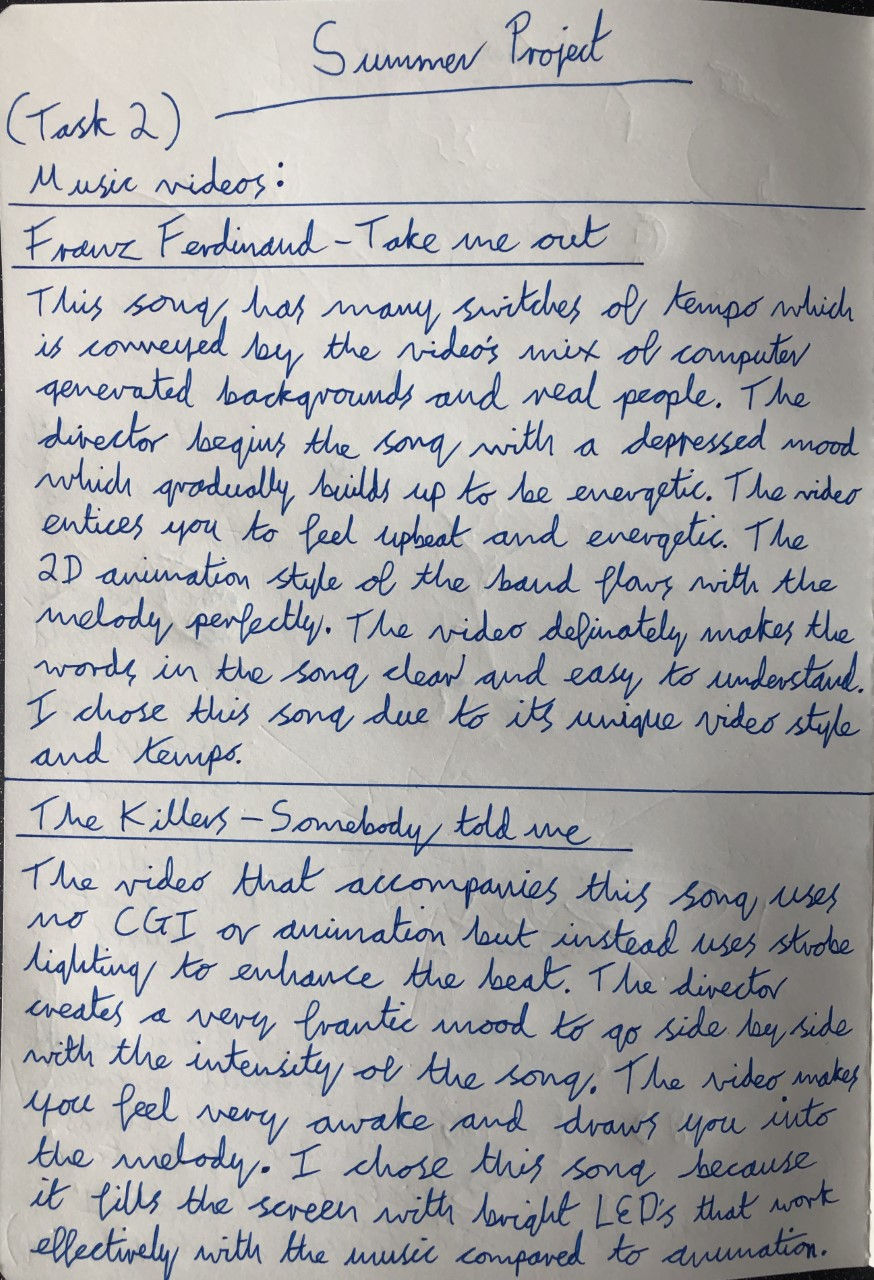 Summer Project
(Task 2)
Music videos:
Franz Ferdinand - Take me out
This song has many switches of tempo which
is conveyed by the video's mix of computer
generated backgrounds and real people. The
director begins the song with a depressed mood
which gradually builds up to be energetic. The video
entices you to feel upbeat and energetic. The
2D animation style of the band flows with the
melody perfectly. The video definately makes the
words in the song clear and easy to understand.
I chose this song due to its unique video style
and tempo.
The Killers - Somebody told me
The video that accompanies this song uses
no CGI or animation but instead uses strobe
lighting to enhance the beat. The director
creates a very frantic mood to go side by side
with the intensity of the song. The video makes
you feel very awake and draws you into
the melody. I chose this song because
it fills the screen with bright LED's that work
effectively with the music compared to animation.